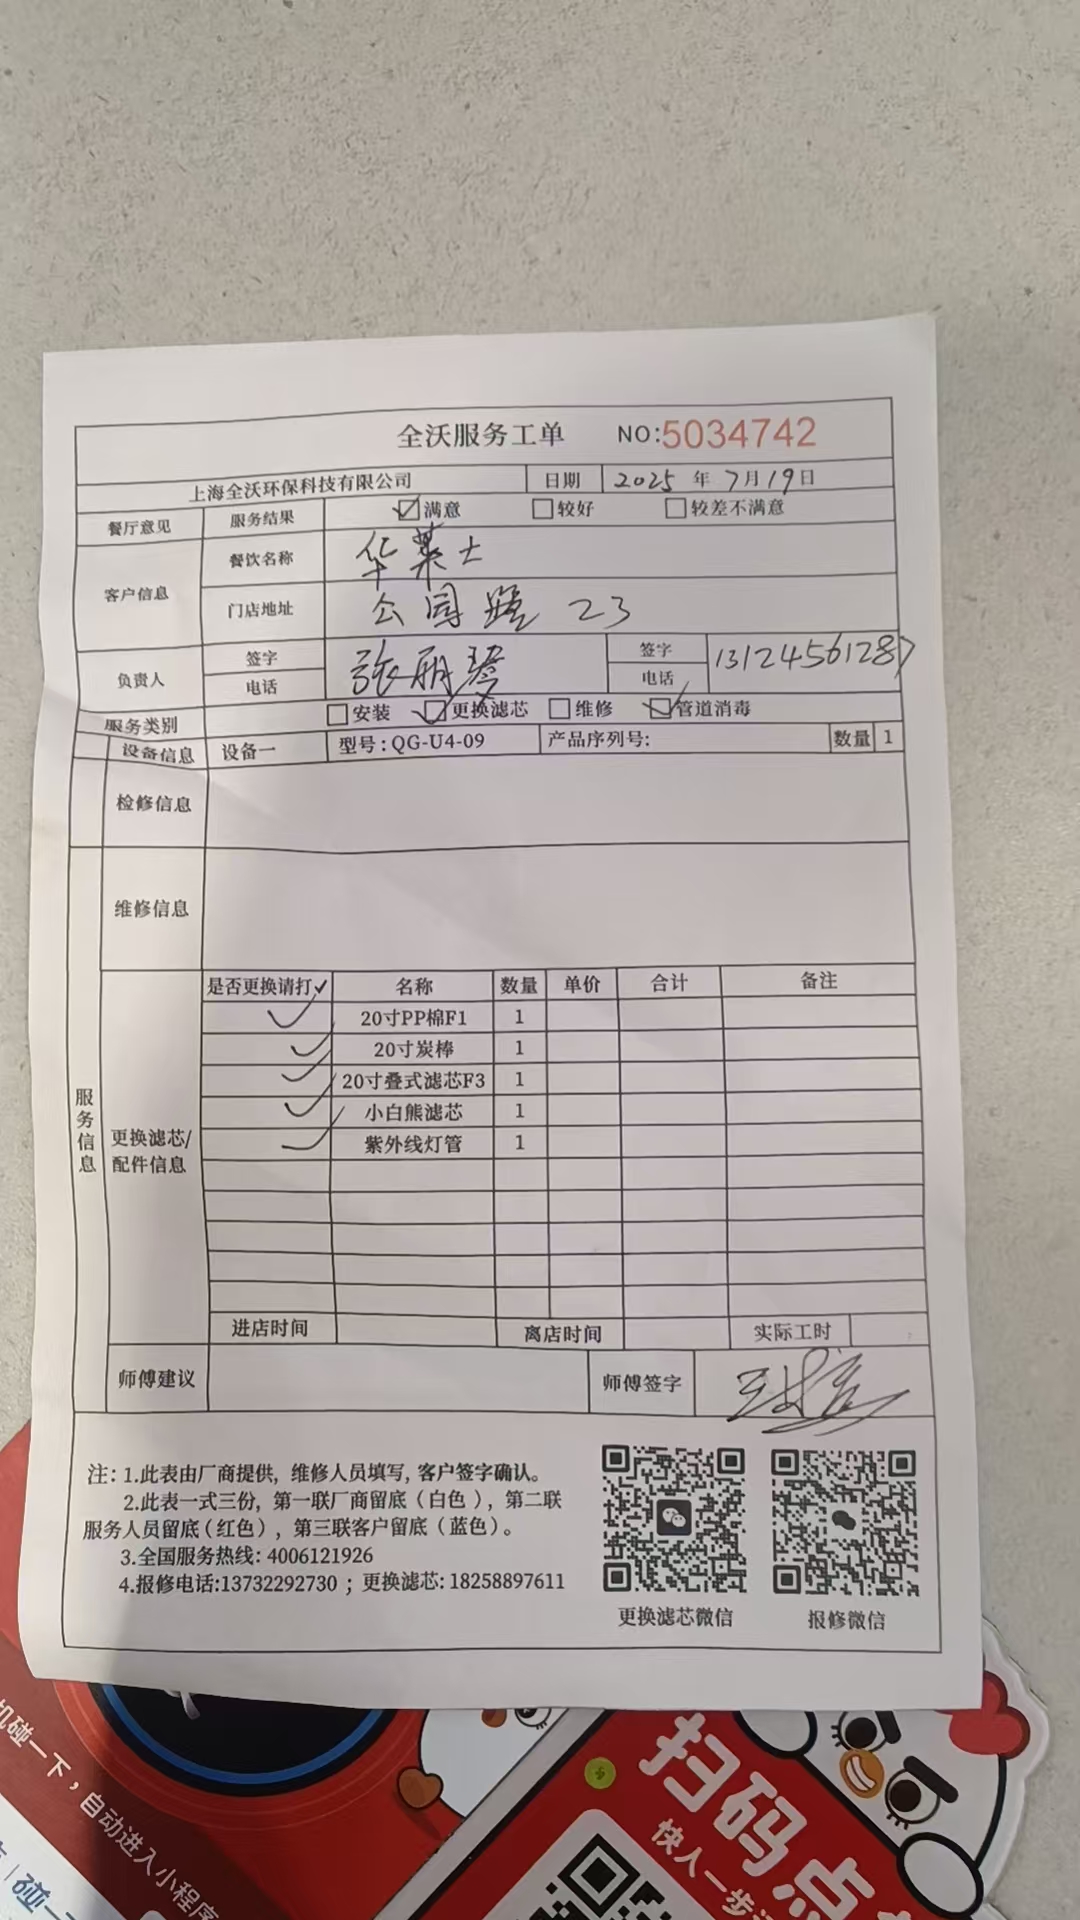 全沃服务工单 NO:5034742
上海全沃环保科技有限公司 日期 2025 年 7月19日
餐厅意见 服务结果 满意 较好 较差不满意
客户信息 餐饮名称 华莱士
门店地址 公园路 23
负责人 签字 张丽琴 签字
电话 电话 13124561287
服务类别 安装 更换滤芯 维修 管道消毒
设备信息 设备一 型号:QG-U4-09 产品序列号: 数量 1
检修信息
维修信息
服务信息
更换滤芯/
配件信息
是否更换请打✓ 名称 数量 单价 合计 备注
✓ 20寸PP棉F1 1
✓ 20寸炭棒 1
✓ 20寸叠式滤芯F3 1
✓ 小白熊滤芯 1
✓ 紫外线灯管 1
进店时间 离店时间 实际工时
师傅建议 师傅签字
注: 1.此表由厂商提供, 维修人员填写, 客户签字确认。
2.此表一式三份, 第一联厂商留底 (白色), 第二联
服务人员留底(红色), 第三联客户留底 (蓝色)。
3.全国服务热线: 4006121926
4.报修电话:13732292730 ; 更换滤芯: 18258897611
更换滤芯微信 报修微信
机碰一下,自动进入小程序
碰一
扫码点
快人一步